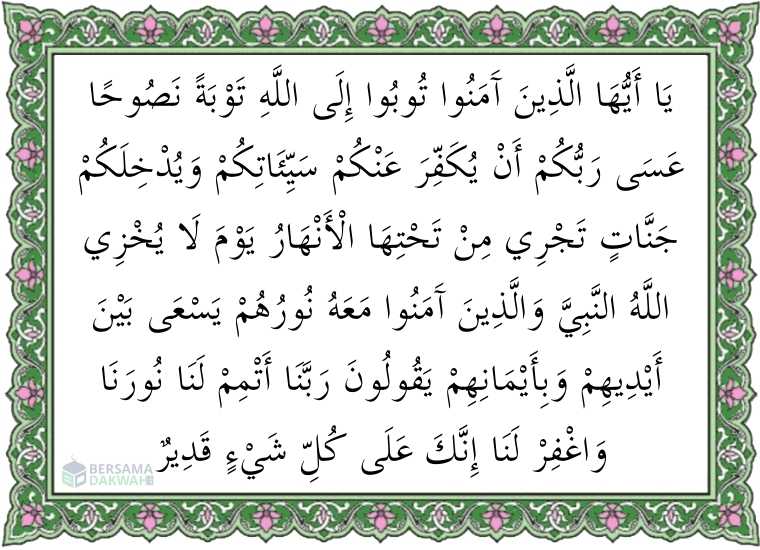 يَا أَيُّهَا الَّذِينَ آَمَنُوا تُوبُوا إِلَى اللَّهِ تَوْبَةً نَصُوحًا
عَسَى رَبُّكُمْ أَنْ يُكَفِّرَ عَنْكُمْ سَيِّئَاتِكُمْ وَيُدْخِلَكُمْ
جَنَّاتٍ تَجْرِي مِنْ تَحْتِهَا الْأَنْهَارُ يَوْمَ لَا يُخْزِي
اللَّهُ النَّبِيَّ وَالَّذِينَ آَمَنُوا مَعَهُ نُورُهُمْ يَسْعَى بَيْنَ
أَيْدِيهِمْ وَبِأَيْمَانِهِمْ يَقُولُونَ رَبَّنَا أَتْمِمْ لَنَا نُورَنَا
وَاغْفِرْ لَنَا إِنَّكَ عَلَى كُلِّ شَيْءٍ قَدِيرٌ
BERSAMA
DAKWAH